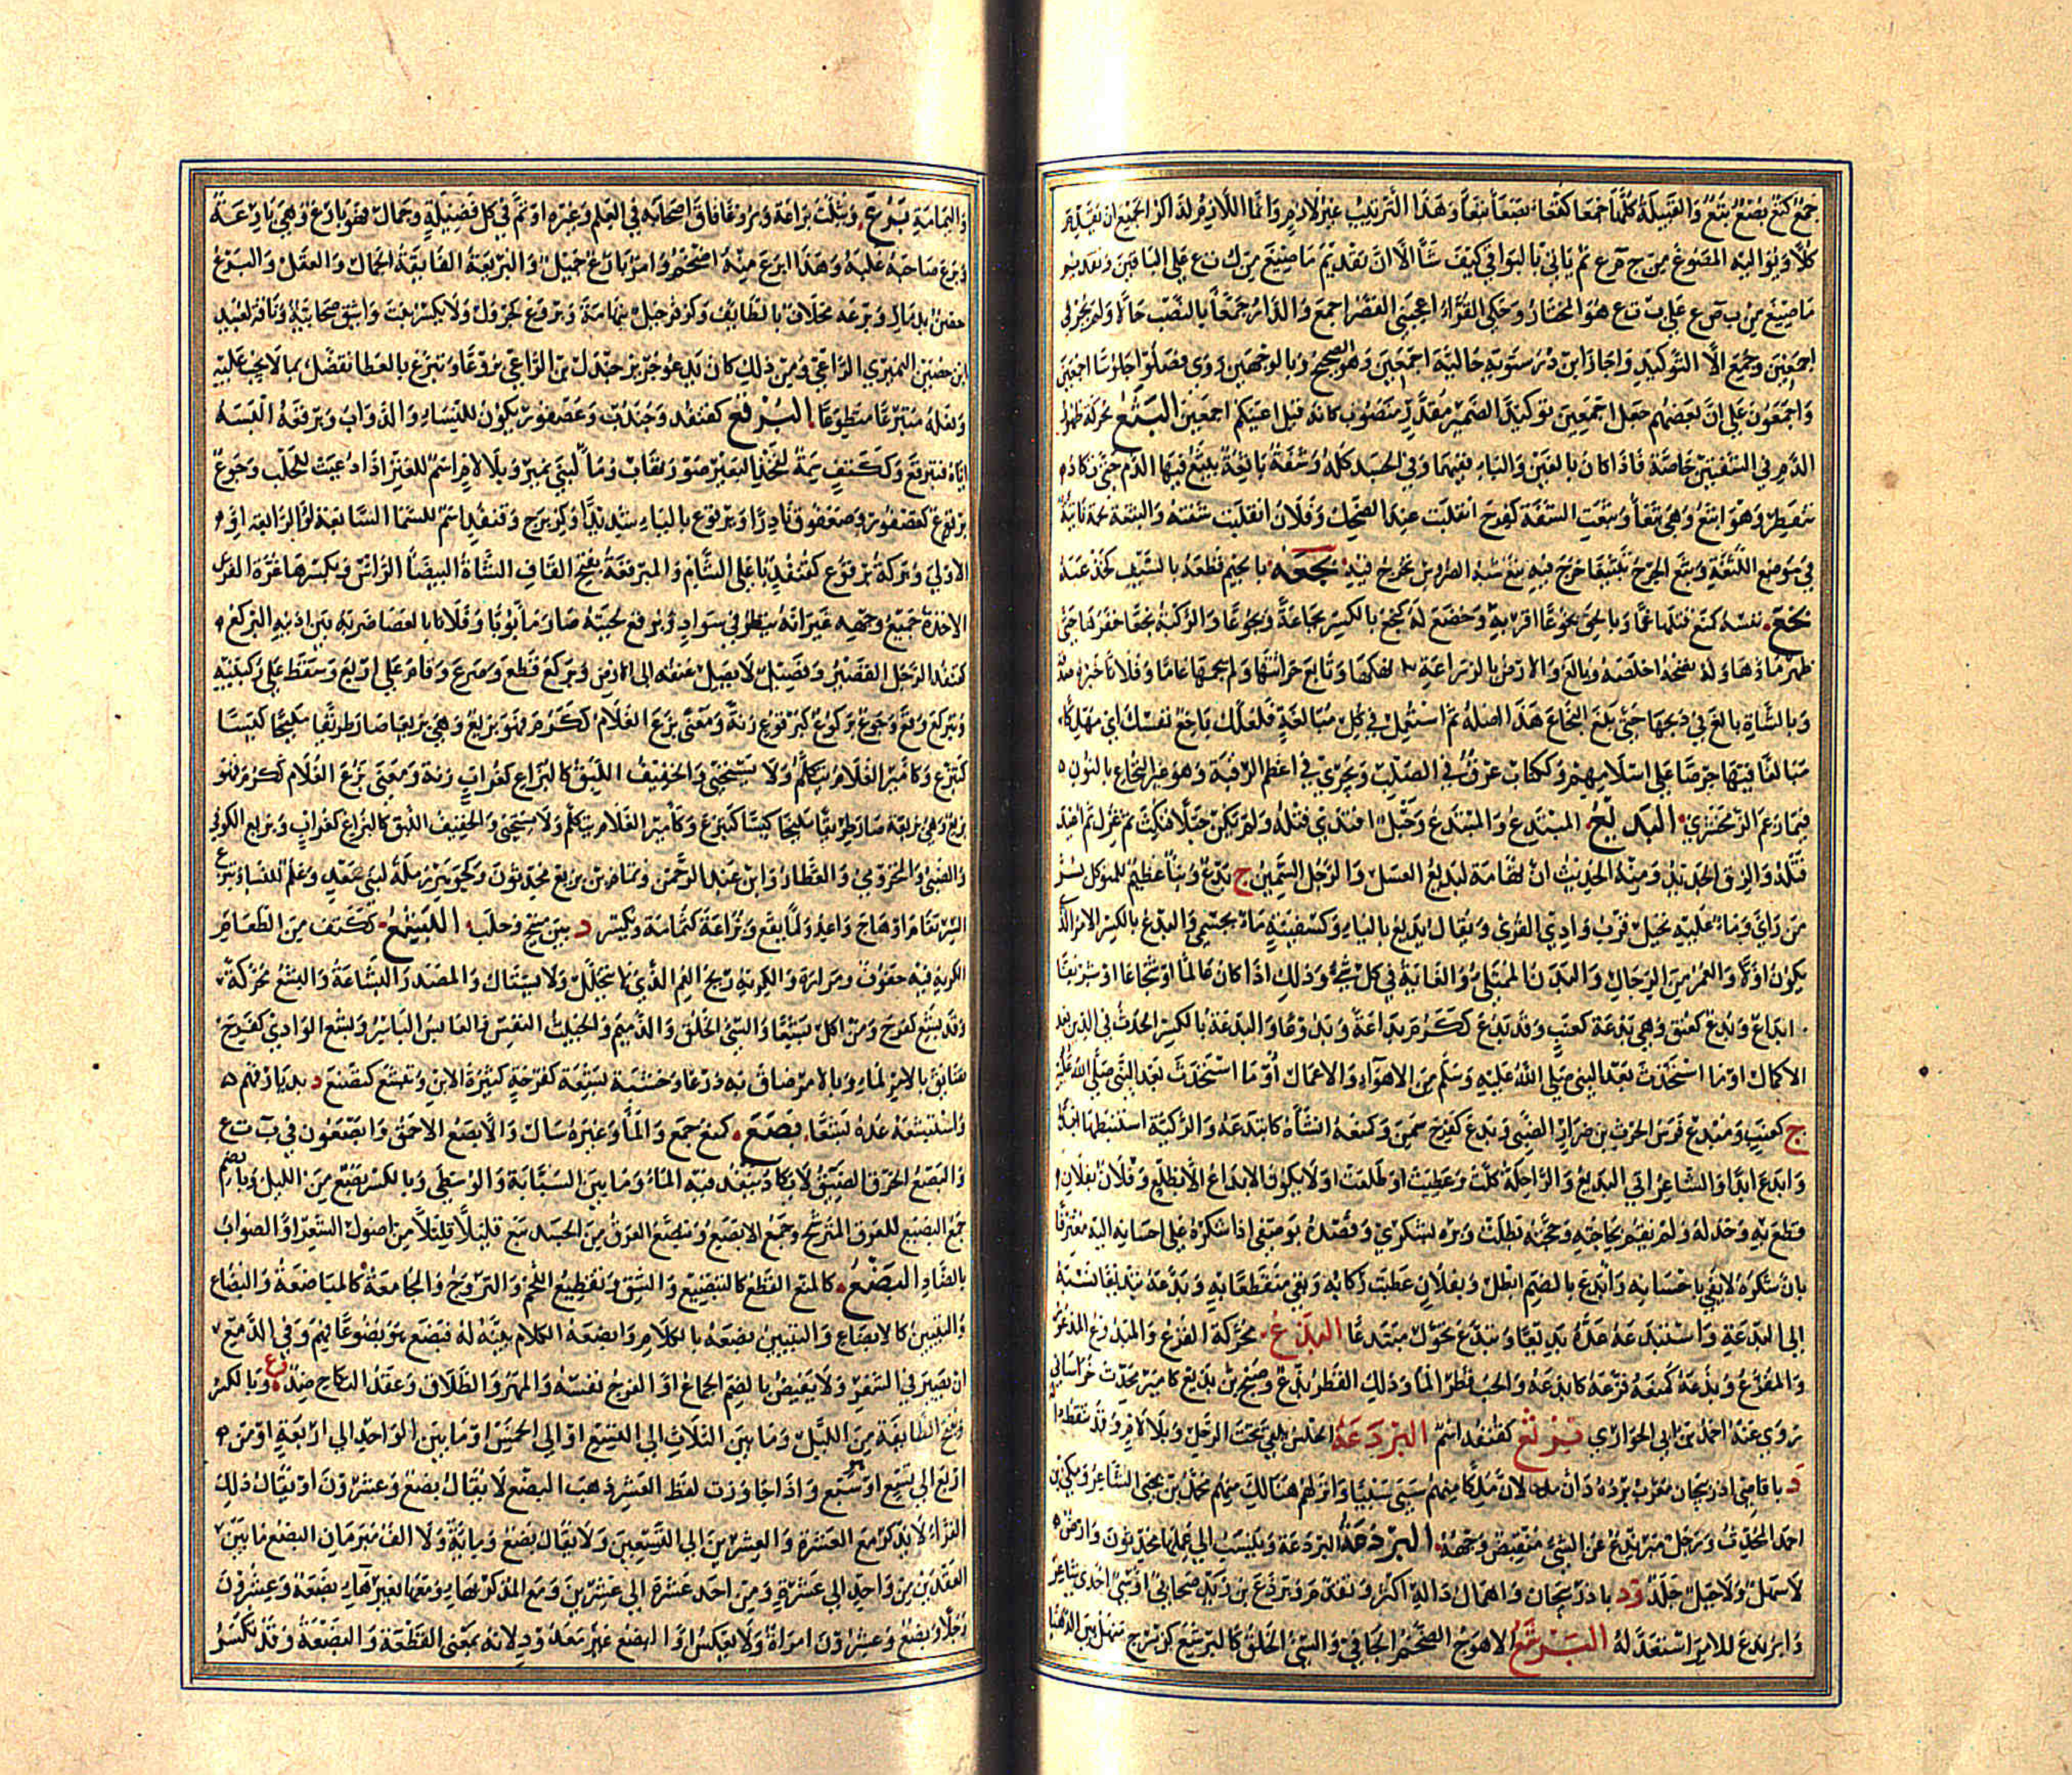 جمع كتع بصع بتع والقبيلة كلها جمعاء كتعاء بصعاء بتعاء وهذا الترتيب غير لازم وانما اللازم لذاكر الجميع ان يقدم
كلا ويواليه المصوغ من ج م ع ثم ياتي بالبواقي كيف شاء الا ان تقديم ما صيغ من ك ت ع على الباقين وتقديم
ما صيغ من ب ص ع على ب ت ع هو المختار وحكى الفراء اعجبني القصر اجمع والدار جمعاء بالنصب حالا ولم يجز في
اجمعين وجمع الا التوكيد واجاز ابن درستويه حالية اجمعين وهو الصحيح وبالوجهين روي فصلوا جلوسا اجمعين
واجمعون على ان بعضهم جعل اجمعين توكيدا لضمير مقدر منصوب كانه قيل اعنيكم اجمعين البثع محركة ظهور
الدم في الشفتين خاصة فاذا كان بالغين والياء ففيهما وفي الجسد كله وشفة باثعة يبثع فيها الدم حتى تكاد
تنفطر وهو ابثع وهي بثعاء وبثعت الشفة كفرح انقلبت عند الضحك وفلان انقلبت شفته والبثعة لحمة ناتئة
في موضع اللثغة وبثع الجرح تبثيعا خرج فيه بثع شبه الضروس تخرج فيه بجعه بالجيم قطعه بالسيف
بخع نفسه كمنع قتلها غما وبالحق بخوعا اقر به وخضع له كبخع بالكسر بخاعة وبخوعا والركية بخعا حفرها حتى
ظهر ماؤها وله نصحه اخلصه وبالغ والارض بالزراعة نهكها وتابع حراثتها ولم يجمها عاما وفلانا خبره صدقه
وبالشاة بالغ في ذبحها حتى بلغ البخاع هذا اصله ثم استعمل في كل مبالغة فلعلك باخع نفسك اي مهلكها
مبالغا فيها حرصا على اسلامهم وككتاب عرق في الصلب ويجري في عظم الرقبة وهو غير النخاع بالنون
فيما زعم الزمخشري البديع المبتدع والمبتدع وحبل ابتدئ فتله ولم يكن حبلا فنكث ثم غزل ثم اعيد
فتله والزق الجديد ومنه الحديث ان تهامة كبديع العسل والرجل السمين ج بدع وبناء عظيم للمتوكل بسر
من راى وماء عليه نخيل قرب وادي القرى ويقال يديع بالياء وكسفينة ماء بحسمى والبدع بالكسر الامر الذي
يكون اولا والغمر من الرجال والبدن الممتلئ والغاية في كل شيء وذلك اذا كان عالما او شجاعا او شريفا
ابداع وبدع كعنق وهي بدعة كعنب وقد بدع ككرم بداعة وبدوعا والبدعة بالكسر الحدث في الدين بعد
الاكمال او ما استحدث بعد النبي صلى الله عليه وسلم من الاهواء والاعمال
ج كعنب ومبدع فرس الحرث بن ضرار الضبي وبدع كفرح سمن وكمنعه انشاه كابتدعه والركية استنبطها
وابدع ابدا والشاعر اتى بالبديع والراحلة كلت وعطبت او ظلعت او لا يكون الابداع الا بظلع وفلان بفلان
قطع به وخذله ولم يقم بحاجته وحجته بطلت وبره بشكري وقصده بوصفي اذا شكره على احسانه اليه معترفا
بان شكره لا يفي باحسانه وابدع بالضم ابطل وبفلان عطبت ركابه وبقي منقطعا به وبدعه تبديعا نسبه
الى البدعة واستبدعه عده بديعا وتبدع تحول مبتدعا البذع محركة الفزع والمبذوع المذعور
والمفزع وبذعه كمنعه فزعه كابذعه والحب قطر الماء وذلك القطر بذع وصبح بن بذيع كامير محدث خراساني
روى عنه احمد بن ابي الحواري برثع كقنفذ اسم البردعة الحلس يلقى تحت الرحل وبلا لام وقد تنقط داله
د باقاصي اذربيجان معرب برده دان لان ملكا منهم سبى سبيا وانزلهم هنالك منهم محمد بن يحيى الشاعر ومكي بن
احمد المحدث ورجل مبرندع عن الشيء منقبض وجهه البرذعة البردعة وينسب الى عملها محدثون وارض
لا سهل ولا جبل جلد و د باذربيجان واهمال داله اكثر وتقدم وبرذع بن زيد صحابي اوسي احدي شاعر
وابرنذع للامر استعد له البرشع الاهوج الضخم الجافي والسيئ الخلق كالبرشع كزبرج منهل بين الدهناء
واليمامة برع ويثلث براعة وبروعا فاق اصحابه في العلم وغيره او تم في كل فضيلة وجمال فهو بارع وهي بارعة
وبرع صاحبه غلبه وهذا ابرع منه اضخم وامر بارع جميل والبريعة الفائقة الجمال والعقل والبرع
حصن بذمار وبرعة مخلاف بالطائف وكزفر جبل بتهامة وبروع كجرول ولا يكسر بنت واشق صحابية وناقة لعبيد
ابن حصين النميري الراعي ومن ذلك كان يدعو جرير جندل بن الراعي بروعا وتبرع بالعطاء تفضل بما لا يجب عليه
وفعله متبرعا متطوعا البرقع كقنفذ وجندب وعصفور يكون للنساء والدواب وبرقعه البسه
اياه فتبرقع وككتف سمة لفخذ البعير صورة نقاب وماء لبني نمير وبلا لام اسم للعنز اذا دعيت للحلب وجوع
برقوع كعصفور وصعفوق نادرا ويرقوع بالياء شديد وكزبرج وقنفذ اسم للسماء السابعة او الرابعة او
الاولى وبركة برقع كقنفذ باعلى الشام والمبرقعة بفتح القاف الشاة البيضاء الراس وبكسرها غرة الفرس
الاخذة جميع وجهه غير انه ينظر في سواد وبرقع لحيته صار مابونا وفلانا بالعصا ضربه بين اذنيه البركع
كقنفذ الرجل القصير وفصيل لا يصل عنقه الى الارض وبركع قطع وصرع وقام على اربع وسقط على ركبتيه
وتبركع وقع وجوع بركوع كبرقوع زنة ومعنى بزع الغلام ككرم فهو بزيع وهي بزيعة صار ظريفا مليحا كيسا
كتبزع وكامير الغلام يتكلم ولا يستحيي والخفيف اللبق كالبزاع كغراب زنة ومعنى بزع الغلام ككرم فهو
بزيع وهي بزيعة صار ظريفا مليحا كيسا كتبزع وكامير الغلام يتكلم ولا يستحيي والخفيف اللبق كالبزاع كغراب وبزيع الكوفي
والضبي والمخزومي والعطار وابن عبد الرحمن وتمام بن بزيع محدثون وكجوهر رملة لبني سعد وعلم للنساء وتبزع
الشر تفاقم او هاج واعد ولما يقع وبزاعة كثمامة ويكسر د بين منبج وحلب البشع ككتف من الطعام
الكريه فيه حفوف ومرارة والكريه ريح الفم الذي لا يتخلل ولا يستاك والمصدر البشاعة والبشع محركة
وقد بشع كفرح ومن اكل بشعا والسيئ الخلق والدميم والخبيث النفس والعابس الباسر وبشع الوادي كفرح
تضايق بالامر لماء وبالامر ضاق به ذرعا وخشبة بشعة كفرحة كثيرة الابن وتبشع كتصنع د بديار فهم
واستبشعه عده بشعا بصع كمنع جمع والماء وغيره سال والابصع الاحمق وابصعون في ب ت ع
والبصع الخرق الضيق لا يكاد ينفذ فيه الماء وما بين السبابة والوسطى وبالكسر بضع من الليل وبالضم
جمع البصيع للعرق المترشح وجمع الابصع وتبصع العرق من الجسد نبع قليلا قليلا من اصول الشعر او الصواب
بالضاد البضع كالمنع القطع كالتبضيع والشق وتقطيع اللحم والتزويج والمجامعة كالمباضعة والبضاع
والتبيين كالابضاع والتبين بضعه بالكلام وابضعه الكلام بينه له فبضع هو بضوعا فهم وفي الدمع
ان يصير في الشفر ولا يفيض بالضم الجماع او الفرج نفسه والمهر والطلاق وعقد النكاح ضد و ع وبالكسر
ويفتح الطائفة من الليل وما بين الثلاث الى التسع او الى الخمس او ما بين الواحد الى اربعة او من
اربع الى تسع او سبع واذا جاوزت لفظ العشر ذهب البضع لا يقال بضع وعشرون او يقال ذلك
الفراء لا يذكر مع العشرة والعشرين الى التسعين ولا يقال بضع ومائة ولا الف مبرمان البضع ما بين
العقدين من واحد الى عشرة ومن احد عشرة الى عشرين ومع المذكر بهاء ومعها بغير هاء بضعة وعشرون
رجلا وبضع وعشرون امراة ولا يعكس او البضع غير معدود لانه بمعنى القطعة والبضعة وقد تكسر